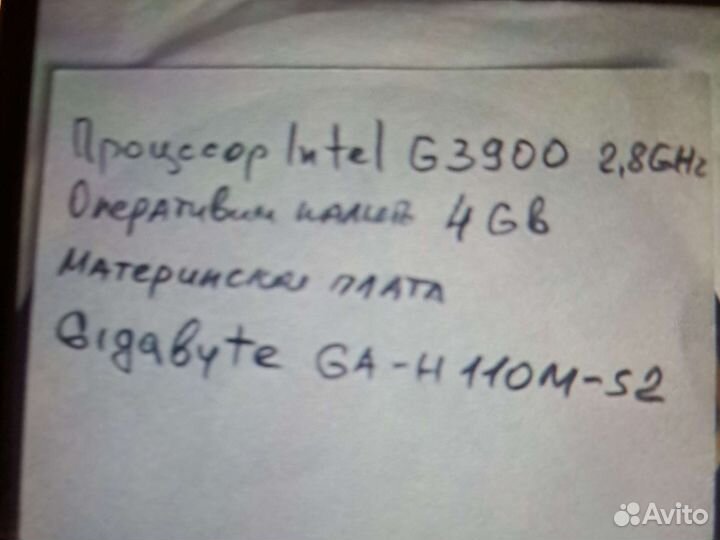 Процессор Intel G3900 2,8GHz
Оперативн 4Gb
Материнская плата
Gigabyte GA-H110M-S2
Avito